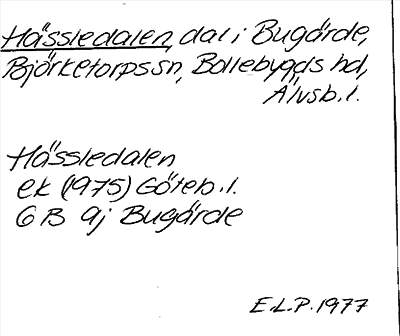 Hässledalen, dal i Bugärde,
Björketorps sn, Bollebygds hd,
Älvsb. l.
Hässledalen
ek (1975) Göteb. l.
6 B 9j Bugärde
E.L.P. 1977